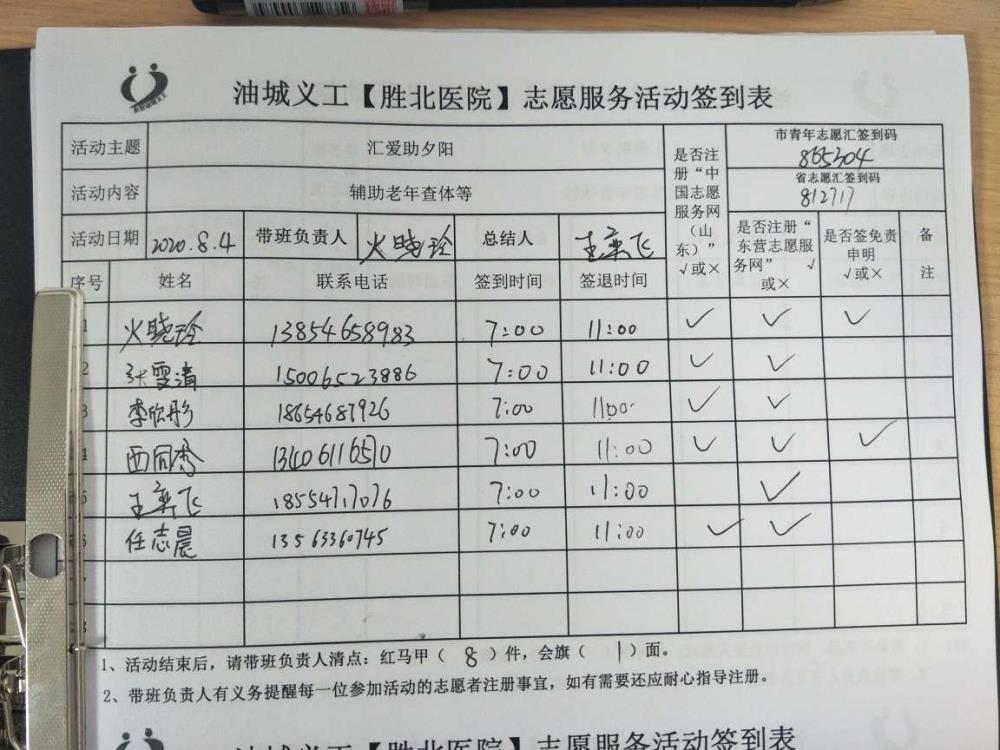 油城义工【胜北医院】志愿服务活动签到表
活动主题 汇爱助夕阳 是否注册“中国志愿服务网（山东）” √或× 市青年志愿汇签到码 865304
活动内容 辅助老年查体等 省志愿汇签到码 812717
活动日期 2020.8.4 带班负责人 火晓玲 总结人 王奕飞 是否注册“东营志愿服务网” √或× 是否签免责申明 √或× 备注
序号 姓名 联系电话 签到时间 签退时间
1 火晓玲 13854658983 7:00 11:00 ✓ ✓ ✓
2 张雪清 15006523886 7:00 11:00 ✓ ✓
3 李欣彤 18654687926 7:00 11:00 ✓ ✓
4 西同秀 13406116510 7:00 11:00 ✓ ✓ ✓
5 王奕飞 18554717076 7:00 11:00 ✓
6 任志晨 13563360745 7:00 11:00 ✓ ✓
1、活动结束后，请带班负责人清点：红马甲（ 8 ）件，会旗（ 1 ）面。
2、带班负责人有义务提醒每一位参加活动的志愿者注册事宜，如有需要还应耐心指导注册。
油城义工【胜北医院】志愿服务活动签到表